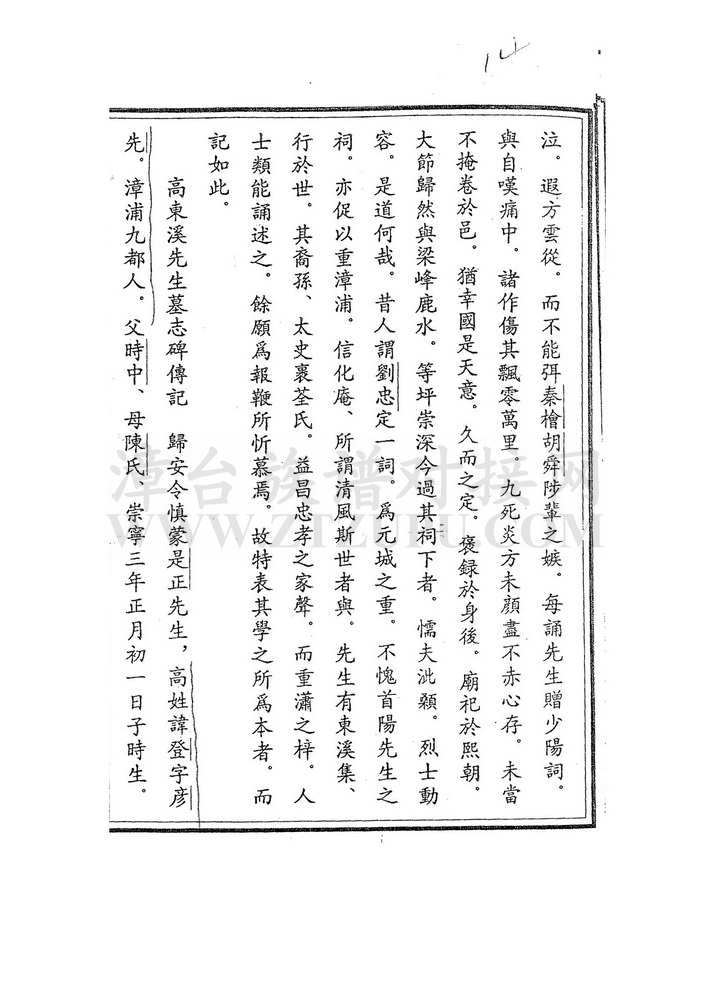 泣。遐方雲從。而不能弭秦檜胡舜陟輩之嫉。每誦先生贈少陽詞。
與自嘆痛中。諸作傷其飄零萬里。九死炎方未顏盡不赤心存。未當
不掩卷於邑。猶幸國是天意。久而之定。褒録於身後。廟祀於熙朝。
大節歸然與梁峰鹿水。等坪崇深今過其祠下者。懦夫泚顙。烈士動
容。是道何哉。昔人謂劉忠定一詞。爲元城之重。不愧首陽先生之
祠。亦促以重漳浦。信化庵、所謂清風斯世者與。先生有東溪集、
行於世。其裔孫、太史裹荃氏。益昌忠孝之家聲。而重瀟之梓。人
士類能誦述之。餘願爲報鞭所忻慕焉。故特表其學之所爲本者。而
記如此。
高東溪先生墓志碑傳記　歸安令慎蒙是正先生，高姓諱登字彥
先。漳浦九都人。父時中、母陳氏、崇寧三年正月初一日子時生。
漳台族譜对接网
WWW.ZTZUPU.COM